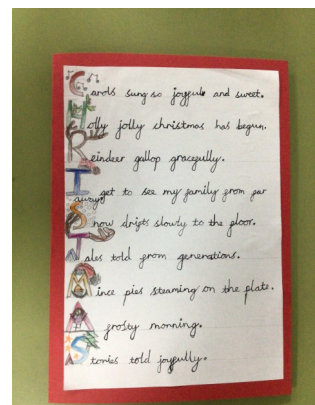 Carols sung so joyfule and sweet.
Holly jolly christmas has begun.
Reindeer gallop gracefully.
I get to see my family from far
away.
Snow drifts slowly to the floor.
Tales told from generations.
Mince pies steaming on the plate.
A frosty morning.
Stories told joyfully.